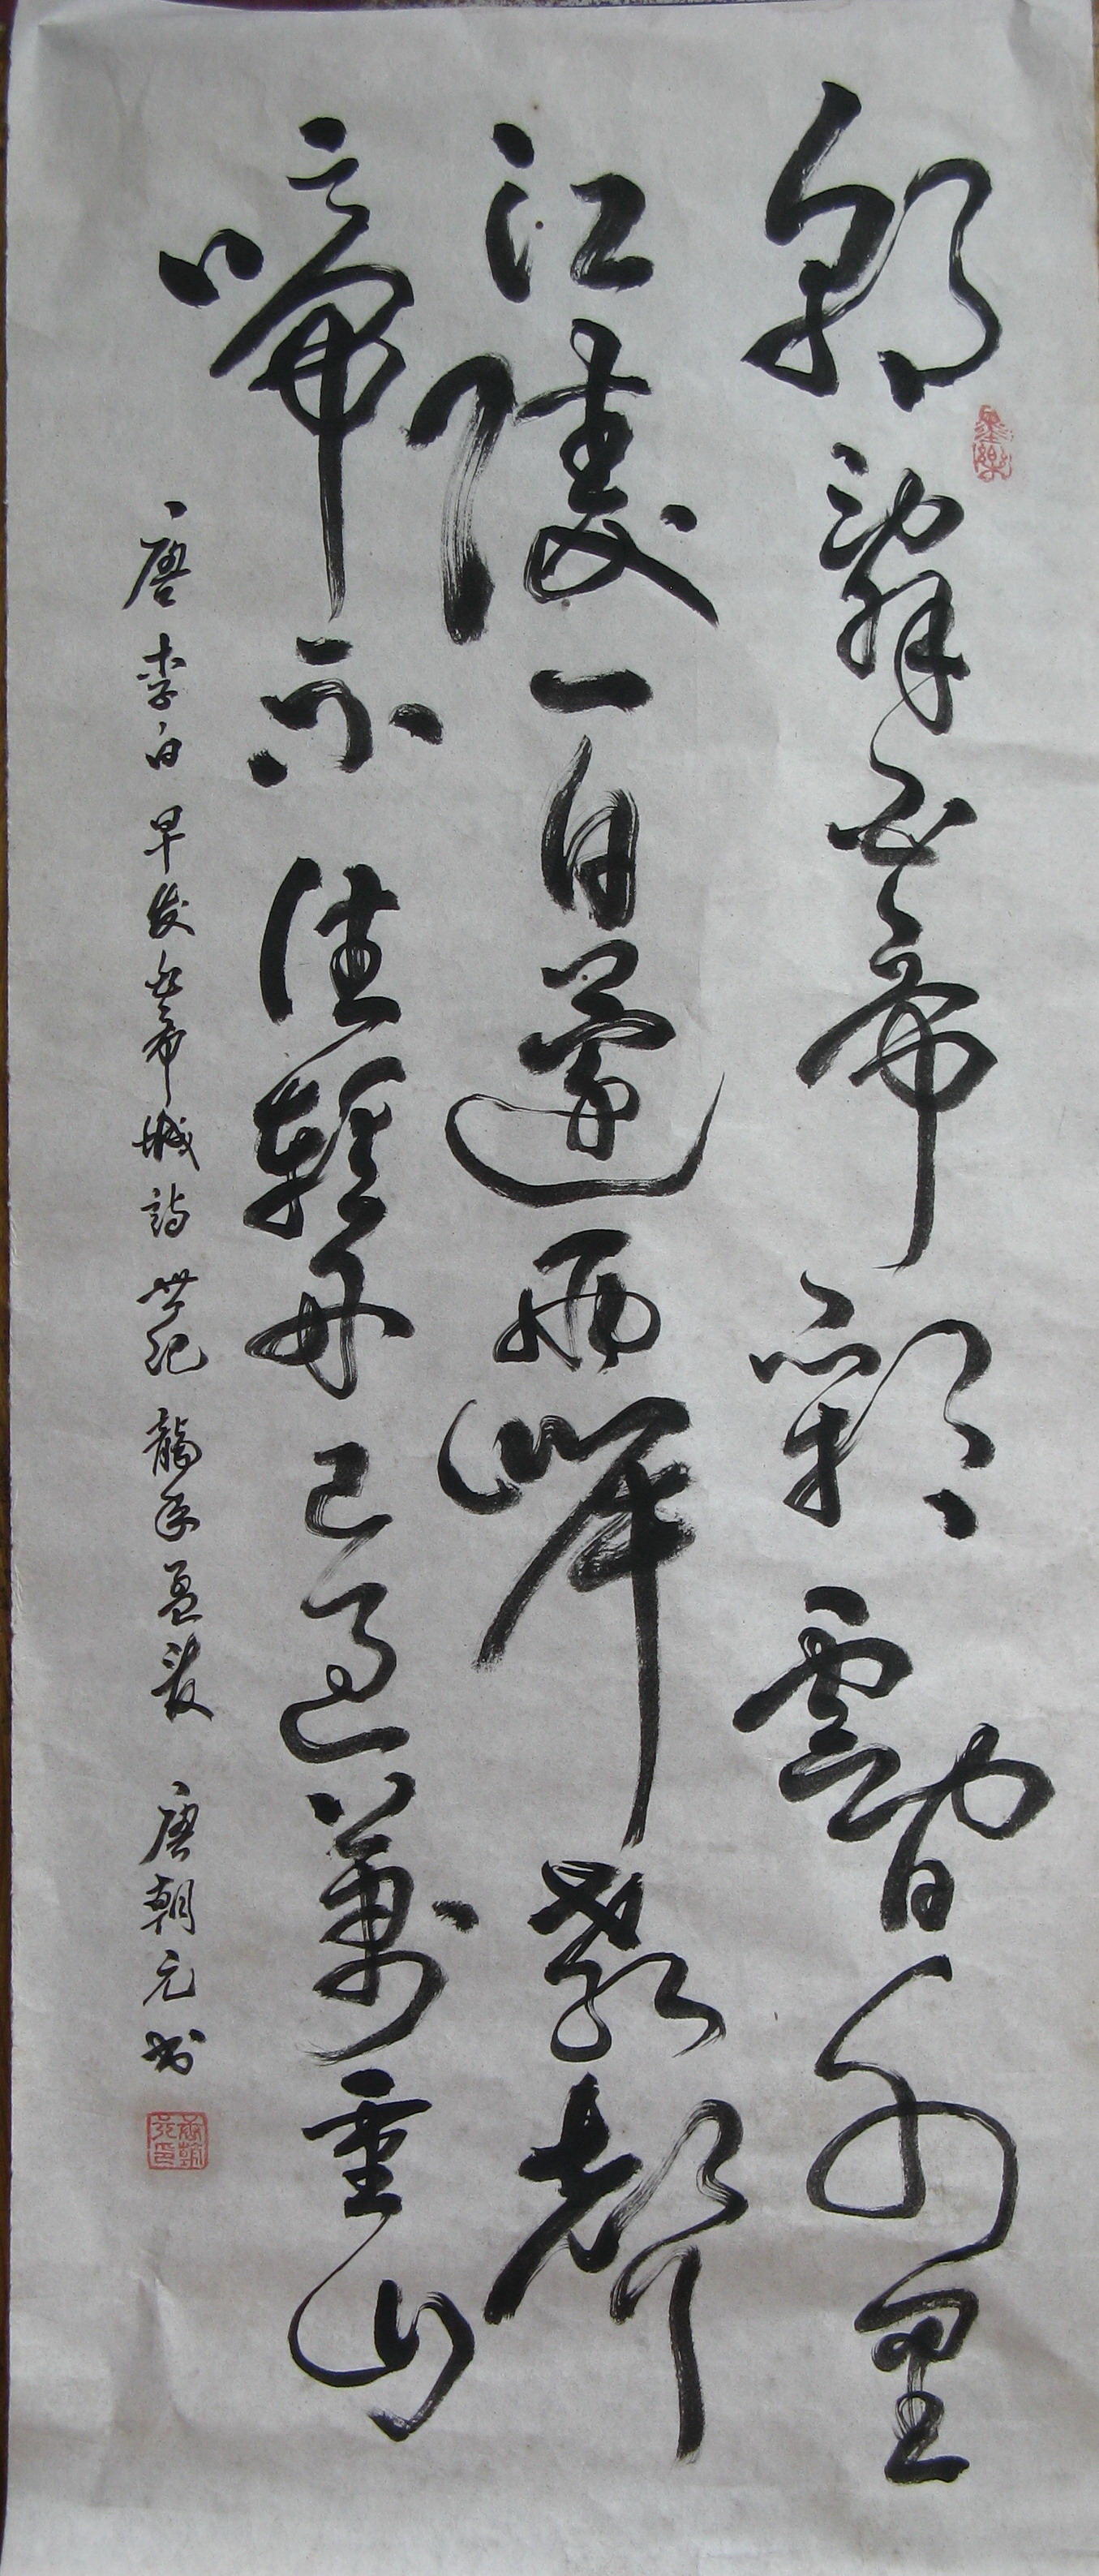 朝辭白帝彩雲間千里
江陵一日還兩岸猿聲
啼不住輕舟已過萬重山
唐李白早发白帝城詩 世纪龍年孟 唐朝元书
墨樂
唐朝元印